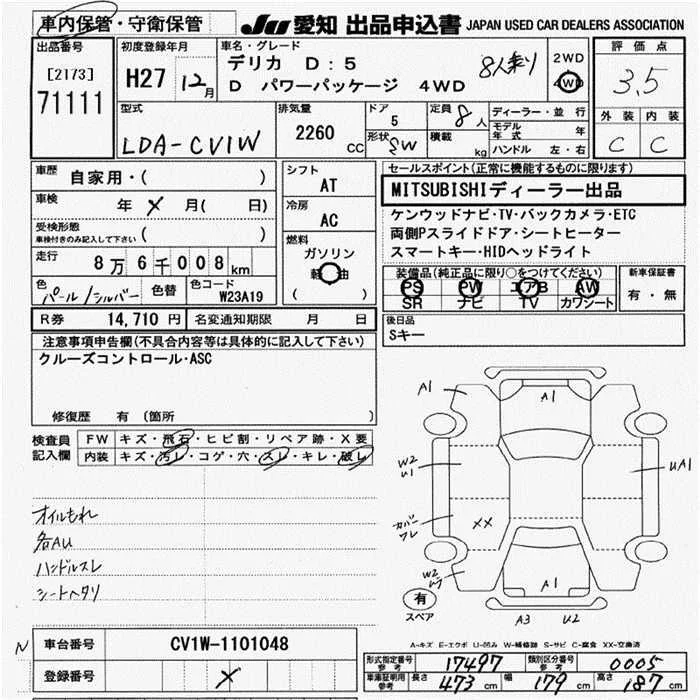 車内保管・守衛保管 JU 愛知 出品申込書 JAPAN USED CAR DEALERS ASSOCIATION
出品番号 初度登録年月 車名・グレード 評価点
[2173] H27 12月 デリカ D:5 8人乗り 2WD 3.5
71111 D パワーパッケージ 4WD 4WD
外装 内装
型式 排気量 ドア 定員 ディーラー・並行
LDA-CV1W 2260 CC 5 8人 モデル年式 年 C C
形状 SW 積載 kg ハンドル 左・右
車歴 自家用・( ) シフト AT セールスポイント(正常に機能するものに限ります)
MITSUBISHIディーラー出品
車検 年 X 月( 日) 冷房 AC ケンウッドナビ・TV・バックカメラ・ETC
受検形態 ( ) 両側Pスライドドア・シートヒーター
車検付きのみ記入して下さい 燃料 スマートキー・HIDヘッドライト
走行 8万6千008km ガソリン 装備品(純正品に限り○をつけてください) 新車保証書
軽油 PS PW エアB AW 有・無
色 パール/シルバー 色替 色コード W23A19 ( ) SR ナビ TV カワシート
R券 14,710円 名変通知期限 月 日 後日品
注意事項申告欄(不具合内容等は具体的に記入して下さい) Sキー
クルーズコントロール・ASC
修復歴 有 (箇所 )
検査員記入欄 FW キズ・飛石・ヒビ割・リペア跡・X要
内装 キズ・汚レ・コゲ・穴・スレ・キレ・破レ
A1 A1
W2 U1 UA1
カバーフレ XX
W2
A1
有 スペア A3 U2
オイルもれ
各AU
ハンドルスレ
シートヘタリ
A-キズ E-エクボ U-凹み W-補修跡 S-サビ C-腐食 XX-交換済
N 車台番号 CV1W-1101048
形式指定番号 参考 17497 類別区分番号 参考 0005
登録番号 X 車庫証明用 参考 長さ 473 cm 幅 179 cm 高さ 187 cm